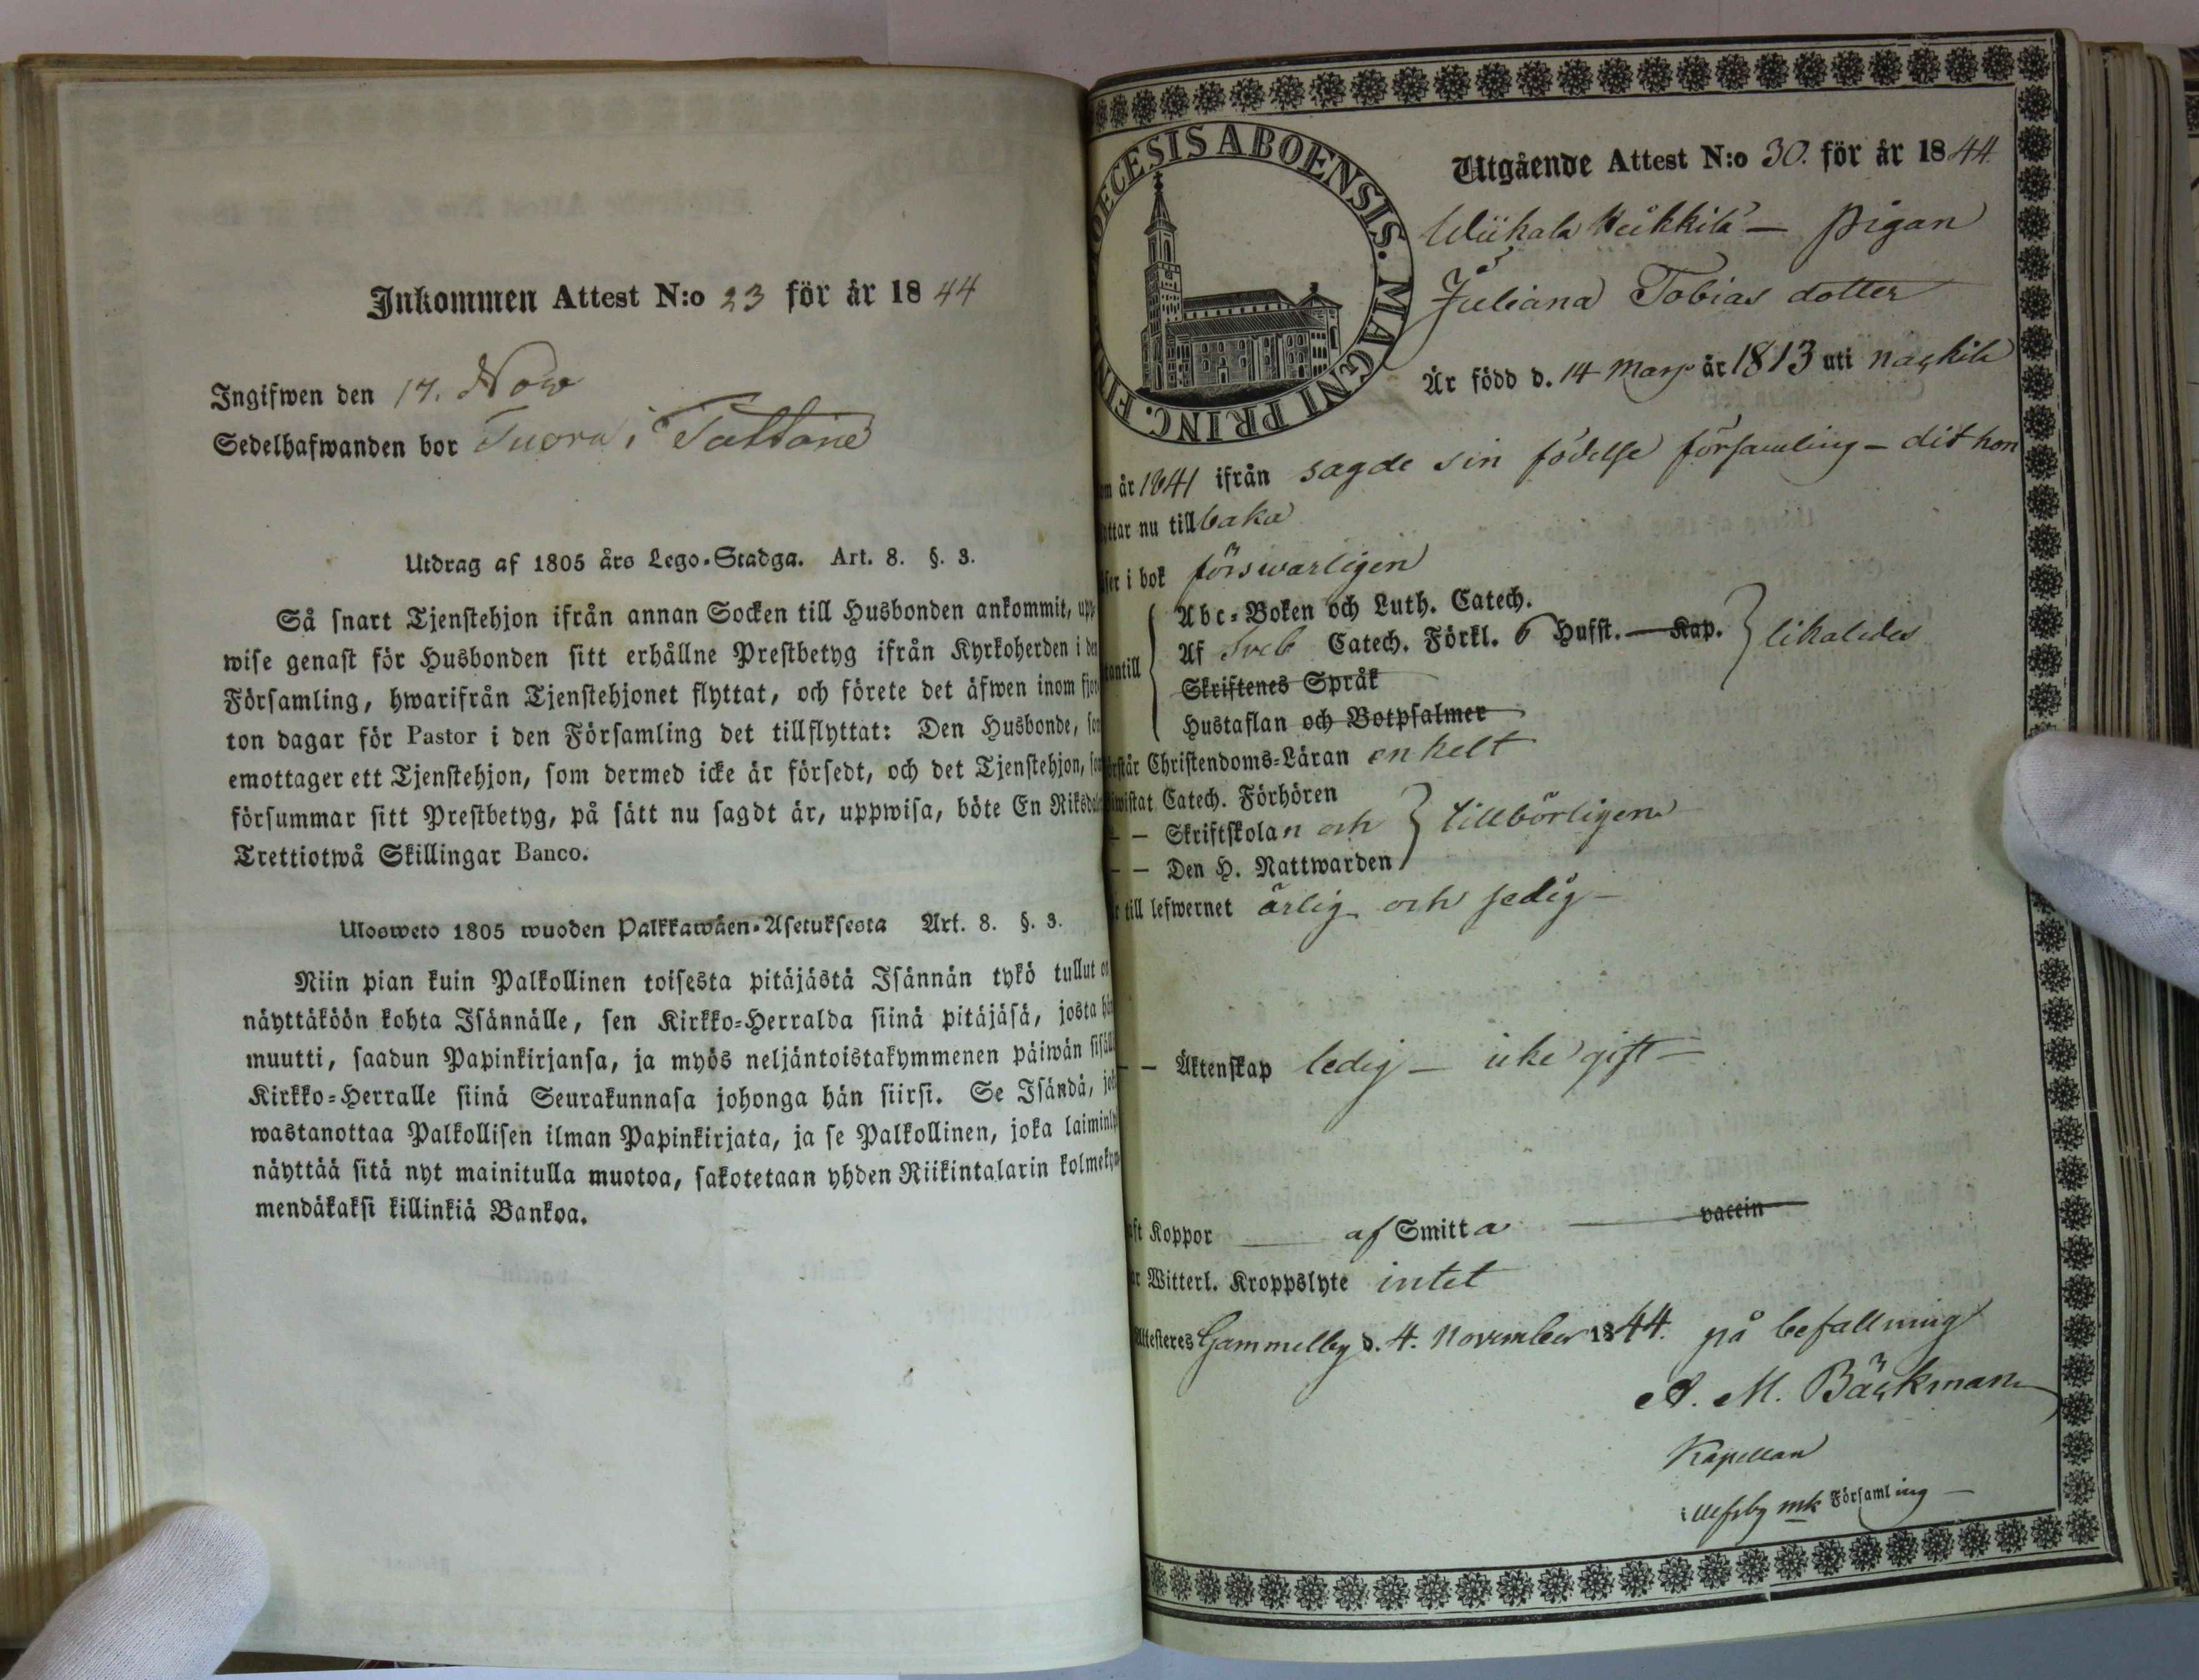 Inkommen Attest N:o 23 för år 1844
Ingifwen den 17. Now
Sedelhafwanden bor Tuora i Tattane
Utdrag af 1805 års Lego-Stadga. Art. 8. §. 3.
Så snart Tjenstehjon ifrån annan Socken till Husbonden ankommit, upp-
wise genast för Husbonden sitt erhållne Prestbetyg ifrån Kyrkoherden i den
Församling, hwarifrån Tjenstehjonet flyttat, och förete det äfwen inom fjor
ton dagar för Pastor i den Församling det tillflyttat: Den Husbonde, som
emottager ett Tjenstehjon, som dermed icke är försedt, och det Tjenstehjon, som
försummar sitt Prestbetyg, på sätt nu sagdt är, uppwisa, böte En Riksdaler
Trettiotwå Skillingar Banco.
Ulosweto 1805 wuoden Palkkawäen-Asetuksesta Art. 8. §. 3.
Niin pian kuin Palkollinen toisesta pitäjästä Isännän tykö tullut on
näyttäköön kohta Isännälle, sen Kirkko-Herralda siinä pitäjäsä, josta hän
muutti, saadun Papinkirjansa, ja myös neljäntoistakymmenen päiwän sisäll
Kirkko-Herralle siinä Seurakunnasa johonga hän siirsi. Se Isändä, jok
wastanottaa Palkollisen ilman Papinkirjata, ja se Palkollinen, joka laiminly
näyttää sitä nyt mainitulla muotoa, sakotetaan yhden Riikintalarin kolmekym
mendäkaksi killinkiä Bankoa.
OECESIS ABOENSIS. MAGNI PRINC. FIN
Utgående Attest N:o 30. för år 1844
Wiikala Heikkilä – pigan
Juliana Tobias dotter
Är född d. 14 Mars år 1813 uti Nackila
m år 1841 ifrån sagde sin födelse församling – dit hon
ttar nu tillbaka
ser i bok förswarligen
Abc-Boken och Luth. Catech.
Af Sveb Catech. Förkl. 6 Hufst. Kap. likaledes
antill
Skriftenes Språk
Hustaflan och Botpsalmer
rstår Christendoms-Läran enkelt
iwistat Catech. Förhören
– – Skriftskolan och tillbörligen
– – Den H. Nattwarden
r till lefwernet ärlig och sedig –
– – Äktenskap ledig – icke gift –
ft Koppor af Smitta vaccin
r Witterl. Kroppslyte intet
Attesteres Gammelby d. 4. November 1844. på befallning
A. M. Bäckman
Kapellan
i Ulfsby mk Församling –